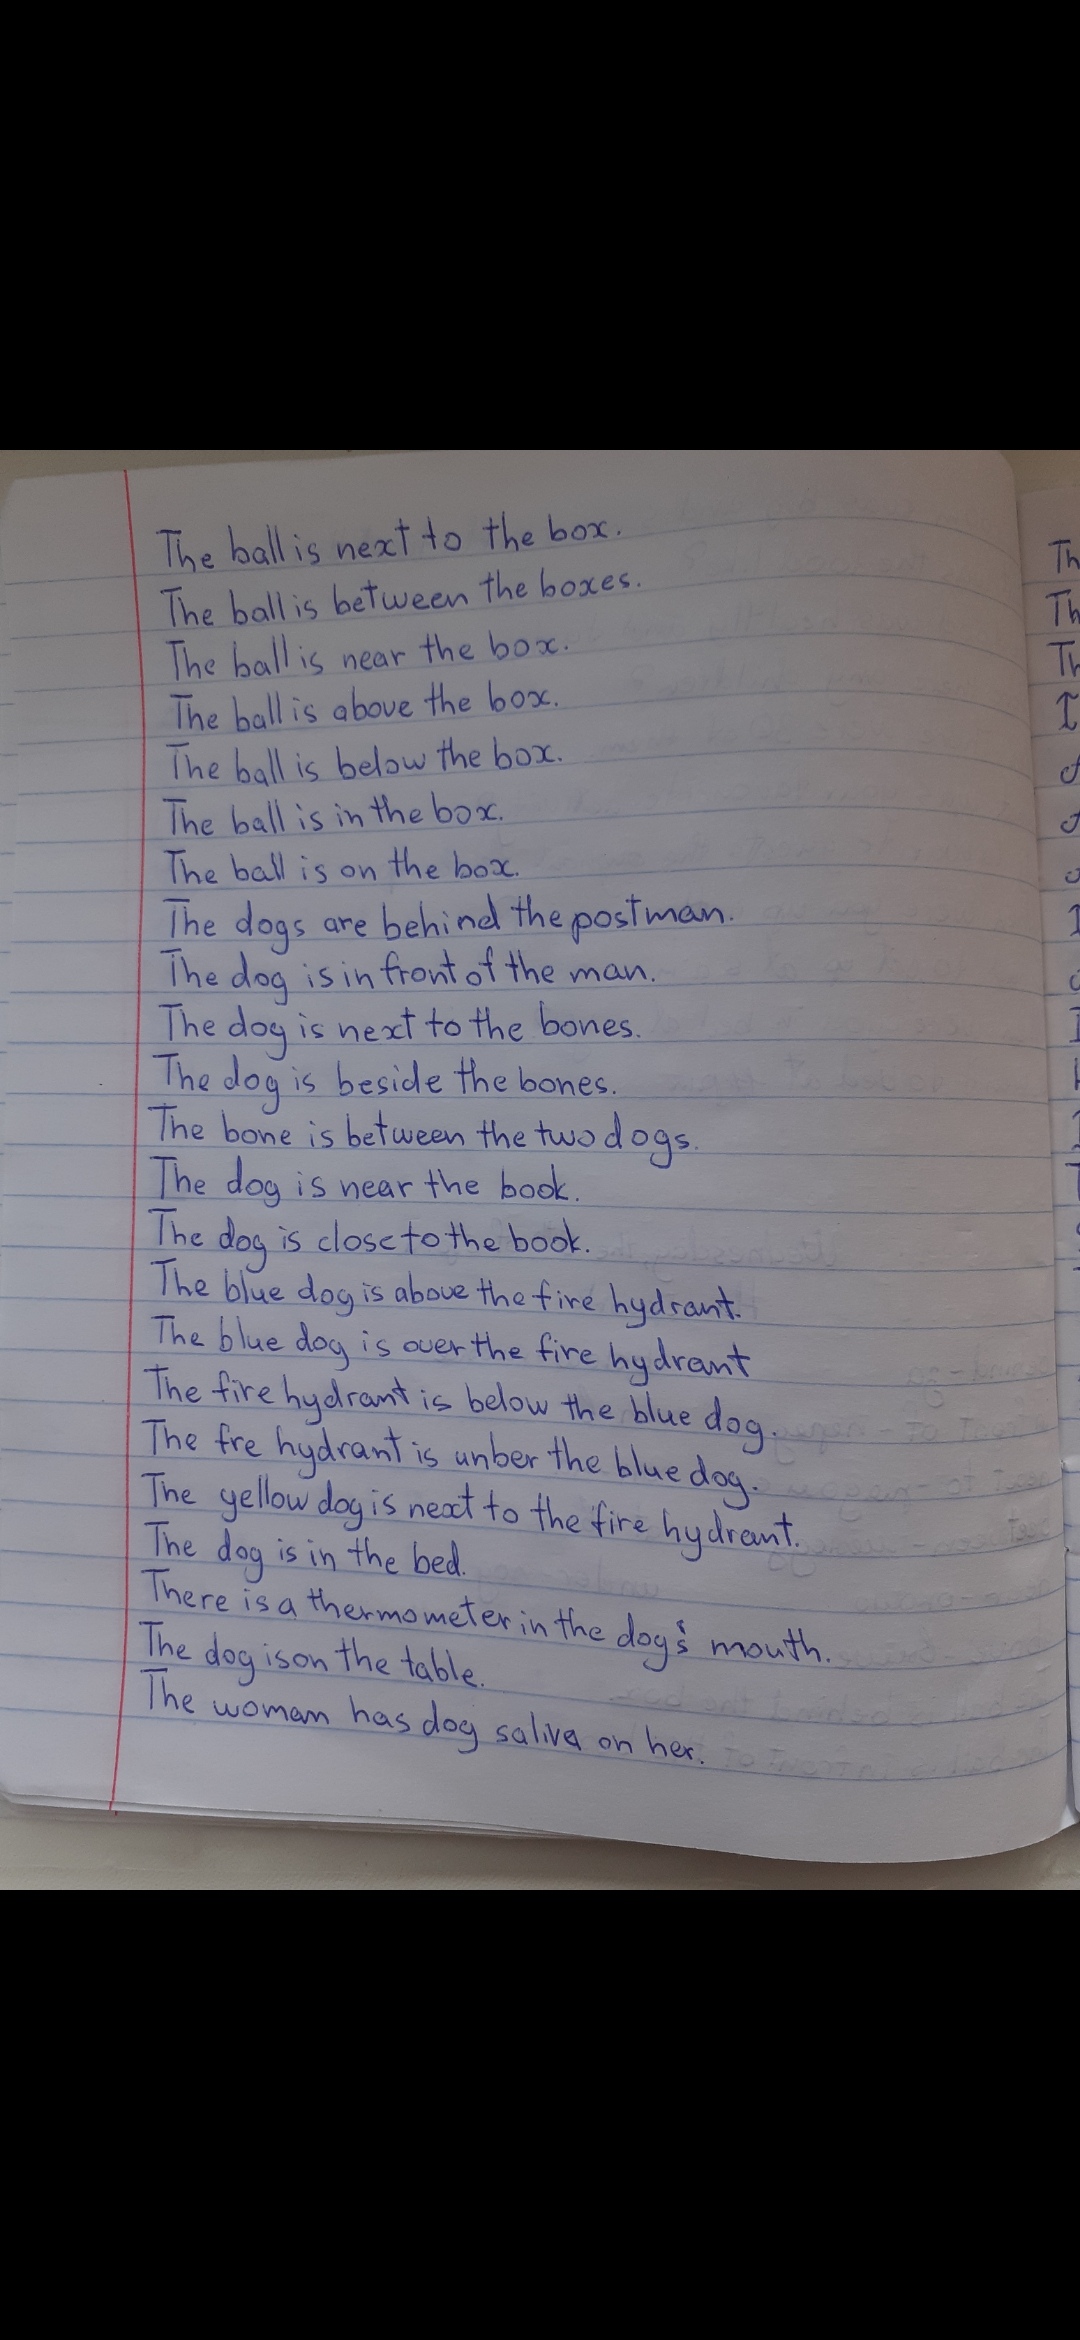 The ball is next to the box.
The ball is between the boxes.
The ball is near the box.
The ball is above the box.
The ball is below the box.
The ball is in the box.
The ball is on the box.
The dogs are behind the postman.
The dog is in front of the man.
The dog is next to the bones.
The dog is beside the bones.
The bone is between the two dogs.
The dog is near the book.
The dog is close to the book.
The blue dog is above the fire hydrant.
The blue dog is over the fire hydrant
The fire hydrant is below the blue dog.
The fre hydrant is unber the blue dog.
The yellow dog is next to the fire hydrant.
The dog is in the bed.
There is a thermometer in the dog's mouth.
The dog is on the table.
The woman has dog saliva on her.
Th
Th
Th